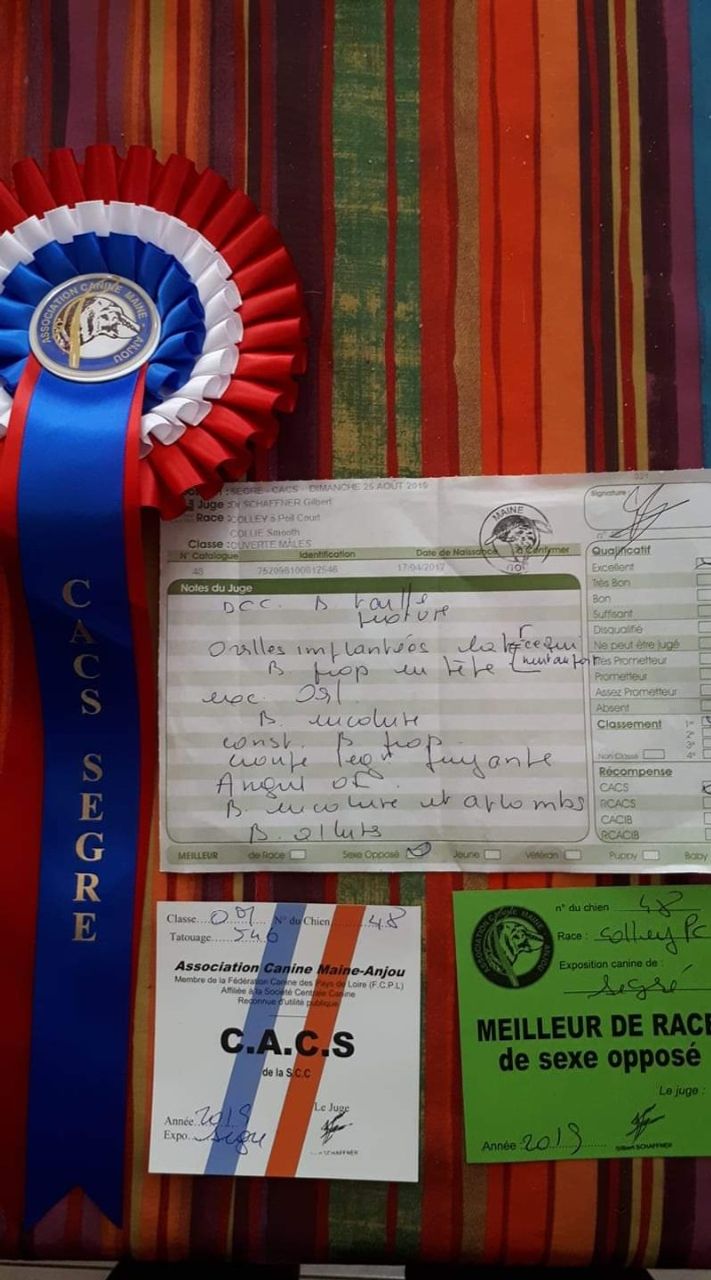 ASSOCIATION CANINE MAINE - ANJOU
CACS SEGRE
SEGRE - CACS - DIMANCHE 25 AOUT 2019
Juge : Dr SCHAFFNER Gilbert
Race : COLLEY à Poil Court
COLLIE Smooth
Classe : OUVERTE MÂLES
N° Catalogue Identification Date de Naissance à Confirmer
48 17/04/2017
MAINE
Signature
n°
Notes du Juge
B taille
Oreilles implantées
B. prop en tête
B. encolure
const. B prop
croupe fuyante
Angul
B. encolure et aplombs
B. allures
Qualificatif
Excellent
Très Bon
Bon
Suffisant
Disqualifié
Ne peut être jugé
Très Prometteur
Prometteur
Assez Prometteur
Absent
Classement 1er
2e
3e
Non Classé 4e
Récompense
CACS
RCACS
CACIB
RCACIB
MEILLEUR de Race Sexe Opposé Jeune Vétéran Puppy Baby
Classe....OM N° du Chien 48
Tatouage 546
Association Canine Maine-Anjou
Membre de la Fédération Canine des Pays de Loire (F.C.P.L)
Affiliée à la Société Centrale Canine
Reconnue d'utilité publique
C.A.C.S
de la S.C.C
Année 2019
Expo. Segré
Le Juge
SCHAFFNER
n° du chien 48
Race : Colley PC
Exposition canine de :
Segré
MEILLEUR DE RACE
de sexe opposé
Le juge :
Année : 2019
Gilbert SCHAFFNER